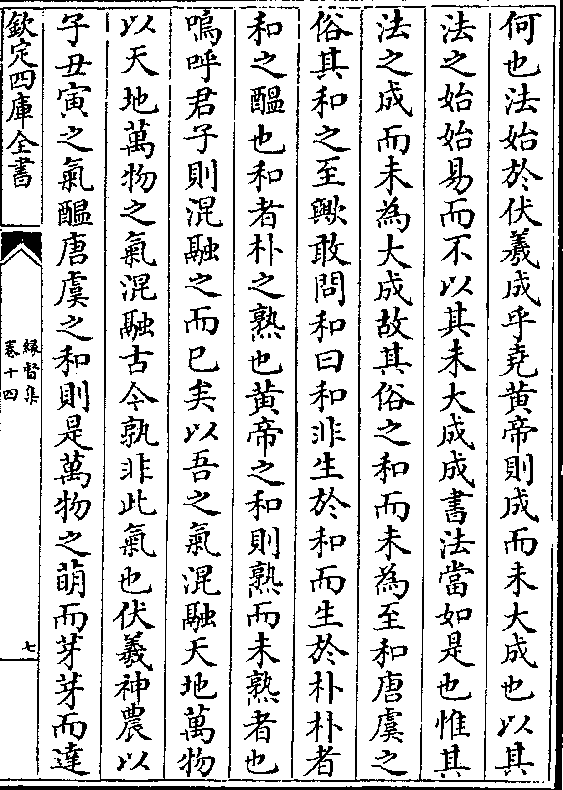 何也法始於伏羲成乎堯黄帝則成而未大成也以其
法之始始易而不以其未大成成書法當如是也惟其
法之成而未為大成故其俗之和而未為至和唐虞之
俗其和之至歟敢問和曰和非生於和而生於朴朴者
和之醖也和者朴之熟也黄帝之和則熟而未熟者也
嗚呼君子則混融之而已矣以吾之氣混融天地萬物
以天地萬物之氣混融古今孰非此氣也伏羲神農以
子丑寅之氣醖唐虞之和則是萬物之萌而芽芽而達
欽定四庫全書
緣督集
卷十四
七